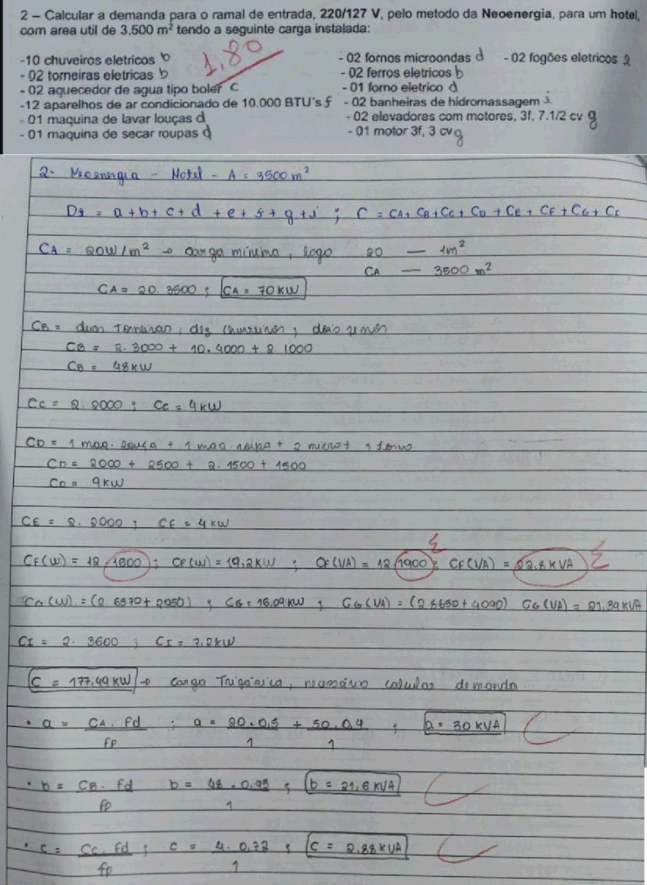 2 – Calcular a demanda para o ramal de entrada, 220/127 V, pelo metodo da Neoenergia, para um hotel,
com area util de 3.500 m² tendo a seguinte carga instalada:
1,80
-10 chuveiros eletricos b
- 02 fornos microondas d
- 02 fogões eletricos e
- 02 torneiras eletricas b
- 02 ferros eletricos b
- 02 aquecedor de agua tipo boler c
- 01 forno eletrico d
-12 aparelhos de ar condicionado de 10.000 BTU's f
- 02 banheiras de hidromassagem i
- 01 maquina de lavar louças d
- 02 elevadores com motores, 3f, 7.1/2 cv g
- 01 maquina de secar roupas d
- 01 motor 3f, 3 cv g
2- Neoenergia - Hotel - A = 3500 m²
D = a+b+c+d+e+f+g+i ; C = CA+CB+CC+CD+CE+CF+CG+CI
CA = 20W/m² → carga mínima, logo 20 — 1m²
CA — 3500 m²
CA = 20.3500 ; CA = 70KW
CB = duas torneiras, dez chuveiros, dois ferros
CB = 2.3000 + 10.4000 + 2.1000
CB = 48KW
CC = 2.2000 ; CC = 4KW
CD = 1 maq. louça + 1 maq. roupa + 2 micro + 1 forno
CD = 2000 + 2500 + 2.1500 + 1500
CD = 9KW
CE = 2.2000 ; CE = 4KW
CF(W) = 12.1600 ; CF(W) = 19,2KW ; CF(VA) = 12.1900 ; CF(VA) = 22,8KVA
CG(W) = (2.6570+2950) ; CG = 16.09KW ; CG(VA) = (2.8650+4090) CG(VA) = 21,39KVA
CI = 2.3600 ; CI = 7.2KW
C = 177,49KW → carga Trifásica, necessário calcular demanda
• a = CA. Fd / fp ; a = 20.0,5 / 1 + 50.0,4 / 1 ; a = 30KVA
• b = CB. Fd / fp b = 48.0,45 / 1 ; b = 21,6KVA
• c = CC. Fd / fp ; c = 4.0,72 / 1 ; c = 2,88KVA